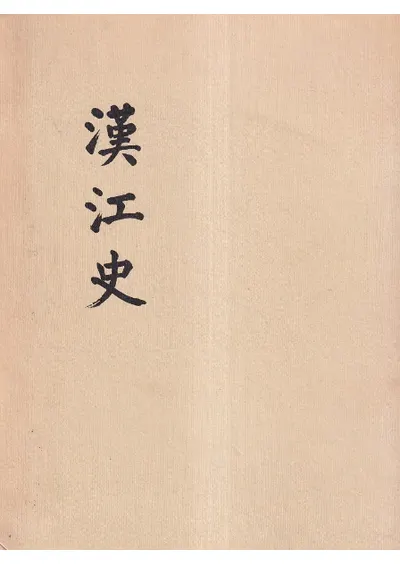 漢江史